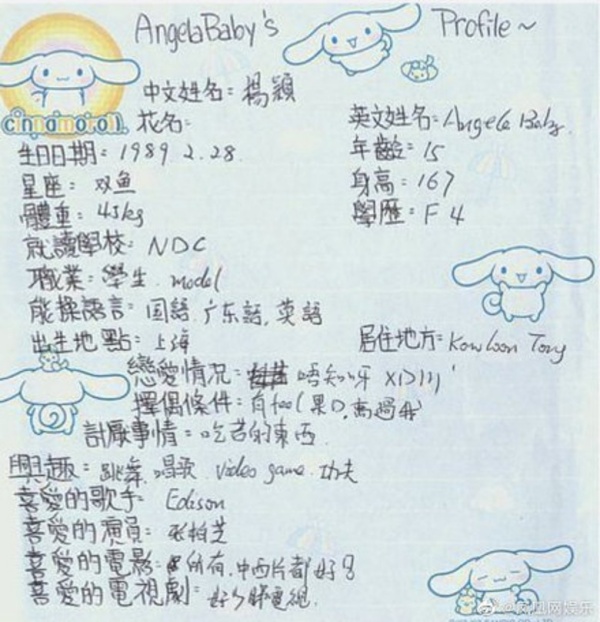 AngelaBaby's Profile~
中文姓名：楊穎
cinnamoroll 花名： 英文姓名：Angela Baby.
生日日期：1989.2.28. 年齡：15
星座：双鱼 身高：167
體重：45kg 學歷：F4
就讀學校：NDC
職業：學生.model
能操語言：国語.广东語.英語
出生地點：上海 居住地方：Kowloon Tong
戀愛情況： 唔知呀 XD)))'
擇偶條件：有feel果D,高過我
討厭事情：吃苦的東西.
興趣：跳舞.唱歌.video game.功夫
喜愛的歌手：Edison
喜愛的演員：张柏芝
喜愛的電影：所有.中西片都好
喜愛的電視劇：好少睇電視.
@凤凰网娱乐